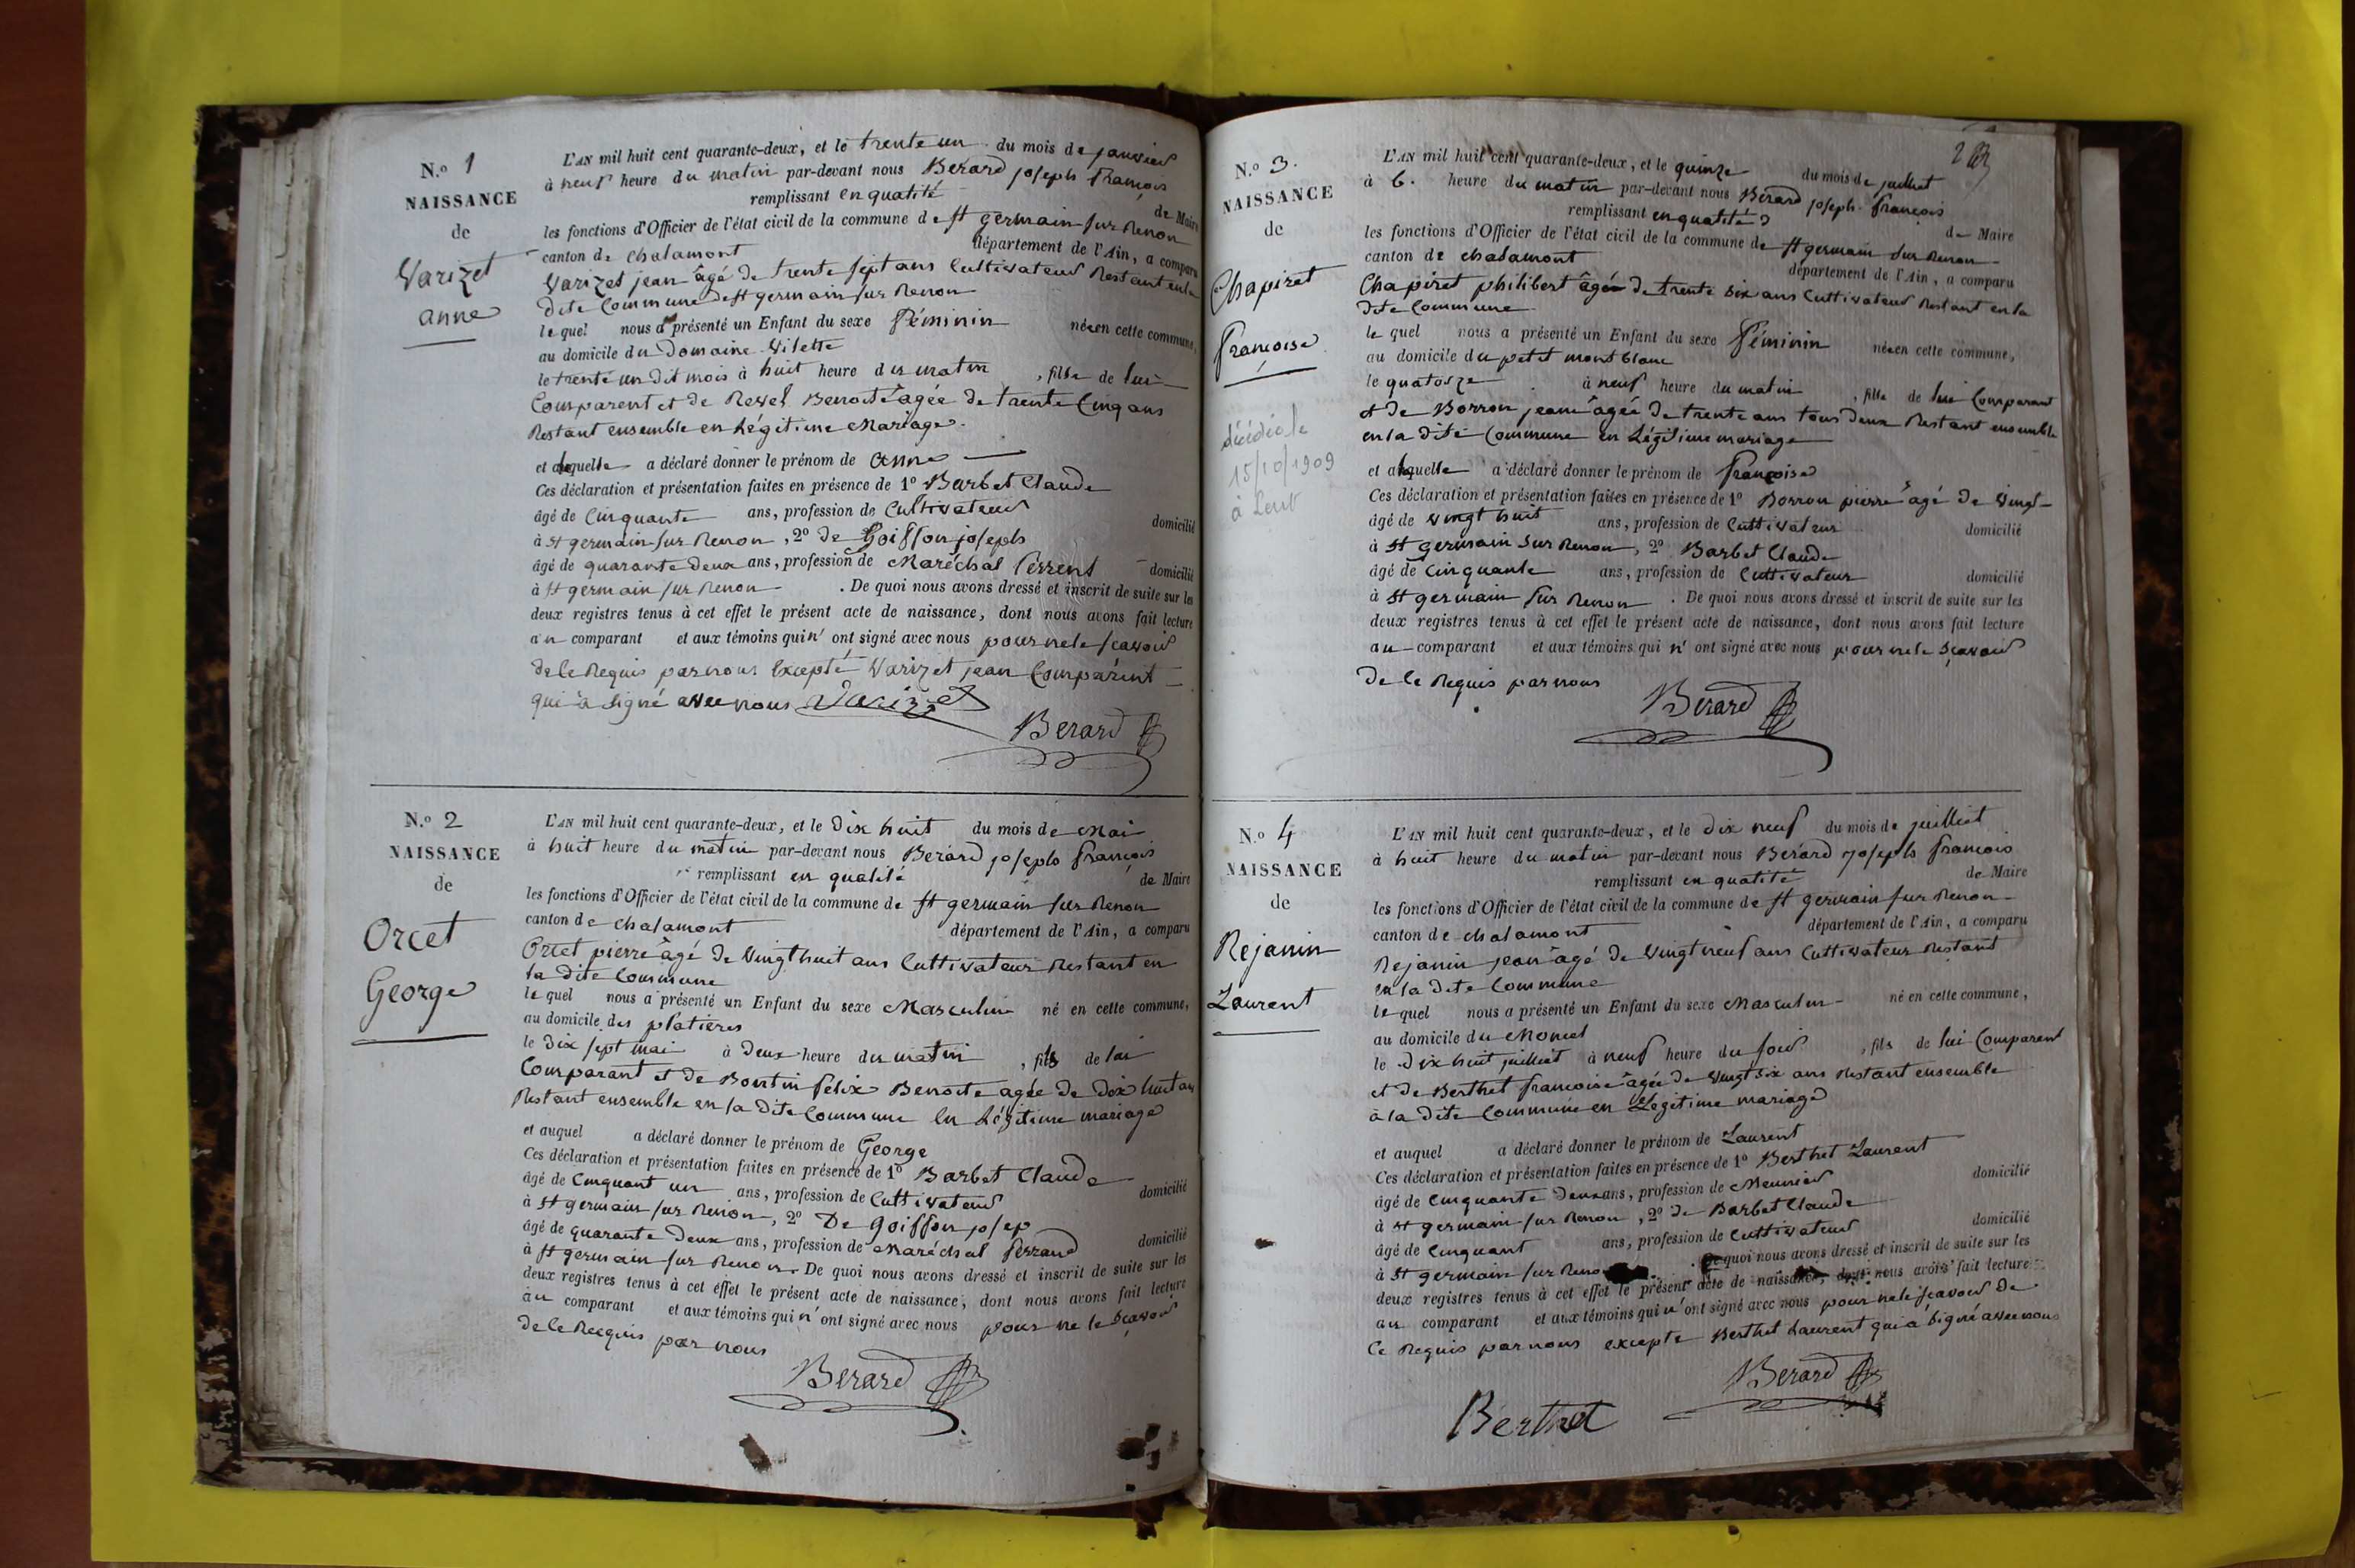 N.º 1
NAISSANCE
de
Varizet
anne
L'AN mil huit cent quarante-deux, et le trente un du mois de janvier
à neuf heure du matin par-devant nous Berard joseph françois
remplissant en qualité de Maire
les fonctions d'Officier de l'état civil de la commune de st germain sur Renon
canton de chalamont département de l'Ain, a comparu
Varizet jean âgé de trente sept ans Cultivateur Restant en la
dite Commune de st germain sur Renon
le quel nous a présenté un Enfant du sexe féminin née en cette commune,
au domicile du Domaine Vilette
le trente un dit mois à huit heure du matin, fille de lui
Comparent et de Revel Benoite âgée de trente Cinq ans
Restant ensemble en Légitime Mariage.
et a laquelle a déclaré donner le prénom de anne
Ces déclaration et présentation faites en présence de 1º Barbet Claude
âgé de Cinquante ans, profession de Cultivateur domicilié
à st germain sur Renon, 2º de Goiffon joseph
âgé de quarante deux ans, profession de Maréchal ferrent domicilié
à st germain sur Renon. De quoi nous avons dressé et inscrit de suite sur les
deux registres tenus à cet effet le présent acte de naissance, dont nous avons fait lecture
au comparant et aux témoins qui n'ont signé avec nous pour ne le scavoir
de le Requis par nous Excepté Varizet jean Comparent
qui à signé avec nous Varizet
Berard
N.º 2
NAISSANCE
de
Orcet
George
L'AN mil huit cent quarante-deux, et le dix huit du mois de Mai
à huit heure du matin par-devant nous Berard joseph françois
remplissant en qualité de Maire
les fonctions d'Officier de l'état civil de la commune de st germain sur Renon
canton de chalamont département de l'Ain, a comparu
Orcet pierre âgé de Vingt huit ans Cultivateur Restant en
la dite Commune
le quel nous a présenté un Enfant du sexe Masculin né en cette commune,
au domicile des platieres
le dix sept mai à deux heure du matin, fils de lui
Comparant et de Bontin felix Benoite agée de dix huit ans
Restant ensemble en la dite Commune En Légitime mariage
et auquel a déclaré donner le prénom de George
Ces déclaration et présentation faites en présence de 1º Barbet Claude
âgé de Cinquant un ans, profession de Cultivateur domicilié
à st germain sur Renon, 2º De goiffon josep
âgé de quarante deux ans, profession de Maréchal ferrand domicilié
à st germain sur Renon. De quoi nous avons dressé et inscrit de suite sur les
deux registres tenus à cet effet le présent acte de naissance, dont nous avons fait lecture
au comparant et aux témoins qui n'ont signé avec nous pour ne le scavoir
de le Requis par nous
Berard
N.º 3.
NAISSANCE
de
Chapiret
françoise
décédée le
15/10/1909
à Lent
L'AN mil huit cent quarante-deux, et le quinze du mois de juillet
à 6. heure du matin par-devant nous Berard joseph françois
remplissant en qualité de Maire
les fonctions d'Officier de l'état civil de la commune de st germain sur Renon
canton de chalamont département de l'Ain, a comparu
Chapiret philibert âgée de trente six ans Cultivateur Restant en la
dite Commune
le quel nous a présenté un Enfant du sexe féminin née en cette commune,
au domicile du petit mont blanc
le quatorze à neuf heure du matin, fille de lui Comparant
et de Borron jeanne âgée de trente ans tous deux Restant ensemble
en la dite Commune en Légitime mariage
et a laquelle a déclaré donner le prénom de françoise
Ces déclaration et présentation faites en présence de 1º Borron pierre âgé de Vingt
âgé de Vingt huit ans, profession de Cultivateur domicilié
à St germain sur Renon, 2º Barbet Claude
âgé de Cinquante ans, profession de Cultivateur domicilié
à st germain sur Renon. De quoi nous avons dressé et inscrit de suite sur les
deux registres tenus à cet effet le présent acte de naissance, dont nous avons fait lecture
au comparant et aux témoins qui n'ont signé avec nous pour ne le scavoir
de le Requis par nous
Berard
N.º 4
NAISSANCE
de
Rejanin
Laurent
L'AN mil huit cent quarante-deux, et le dix neuf du mois de juilliet
à huit heure du matin par-devant nous Berard joseph françois
remplissant en qualité de Maire
les fonctions d'Officier de l'état civil de la commune de st germain sur Renon
canton de chalamont département de l'Ain, a comparu
Rejanin jean âgé de Vingt neuf ans Cultivateur Restant
en la dite Commune
le quel nous a présenté un Enfant du sexe Masculin né en cette commune,
au domicile du
le dix huit juilliet à neuf heure du soir, fils de lui Comparent
et de Berthet françoise âgée de Vingt six ans Restant ensemble
à la dite Commune en Légitime mariage
et auquel a déclaré donner le prénom de Laurent
Ces déclaration et présentation faites en présence de 1º Berthet Laurent
âgé de Cinquante deux ans, profession de Meunier domicilié
à st germain sur Renon, 2º de Barbet Claude
âgé de Cinquant ans, profession de Cultivateur domicilié
à st germain sur Renon. De quoi nous avons dressé et inscrit de suite sur les
deux registres tenus à cet effet le présent acte de naissance, dont nous avons fait lecture
au comparant et aux témoins qui n'ont signé avec nous pour ne le scavoir de
Ce Requis par nous excepte Berthet Laurent qui à signé avec nous
Berard
Berthet